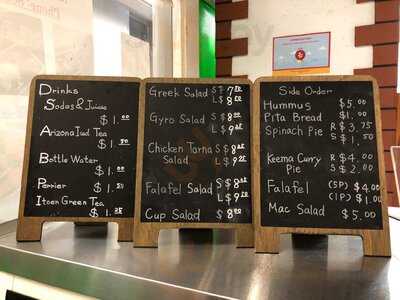 Drinks
Sodas & Juices
$1.00
Arizona Iced Tea
$1.50
Bottle Water
$1.00
Perrier
$1.50
Itoen Green Tea
$1.25
Greek Salad S $7.50
L $8.50
Gyro Salad S $8.00
L $9.00
Chicken Tarna S $8.25
Salad L $9.25
Falafel Salad S $8.00
L $9.00
Cup Salad $8.00
Side Order
Hummus $5.00
Pita Bread $1.00
Spinach Pie R $3.75
S $1.50
Keema Curry R $4.00
Pie S $2.00
Falafel (5P) $4.00
(1P) $1.00
Mac Salad $5.00